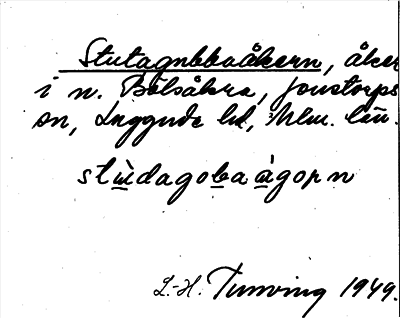 Stutagubbaåkern, åker
i n. Bölsåkra, Jonstorps
sn, Luggude hd, Mlm. län.
stùdagobaàgorn
L.-H. Tunving 1949.